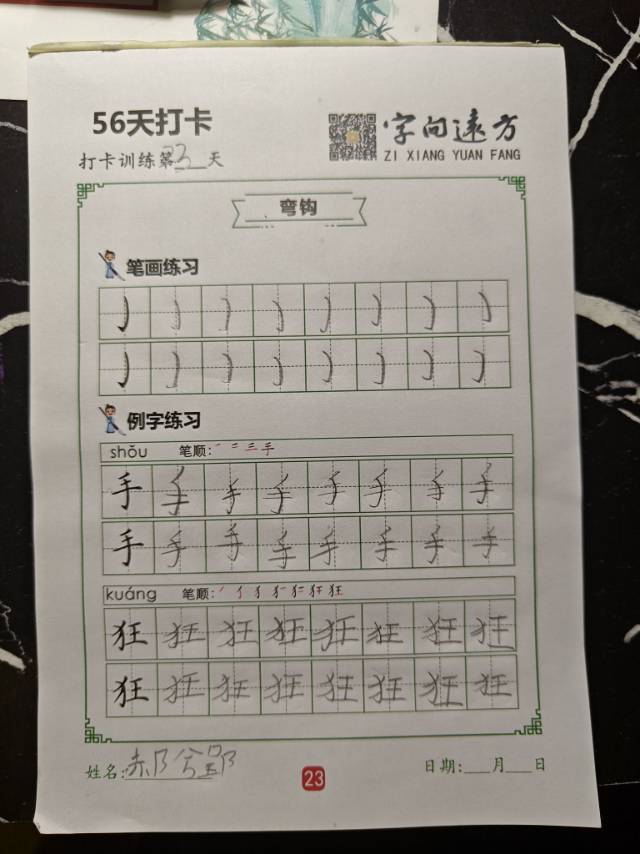 56天打卡
字向遠方
打卡训练第23天
ZI XIANG YUAN FANG
弯钩
笔画练习
例字练习
shǒu 笔顺: ㇒ 二 三 手
手 手 手 手 手 手 手 手
手 手 手 手 手 手 手 手
kuáng 笔顺:
狂 狂 狂 狂 狂 狂 狂 狂
狂 狂 狂 狂 狂 狂 狂 狂
姓名:
23
日期:___月___日